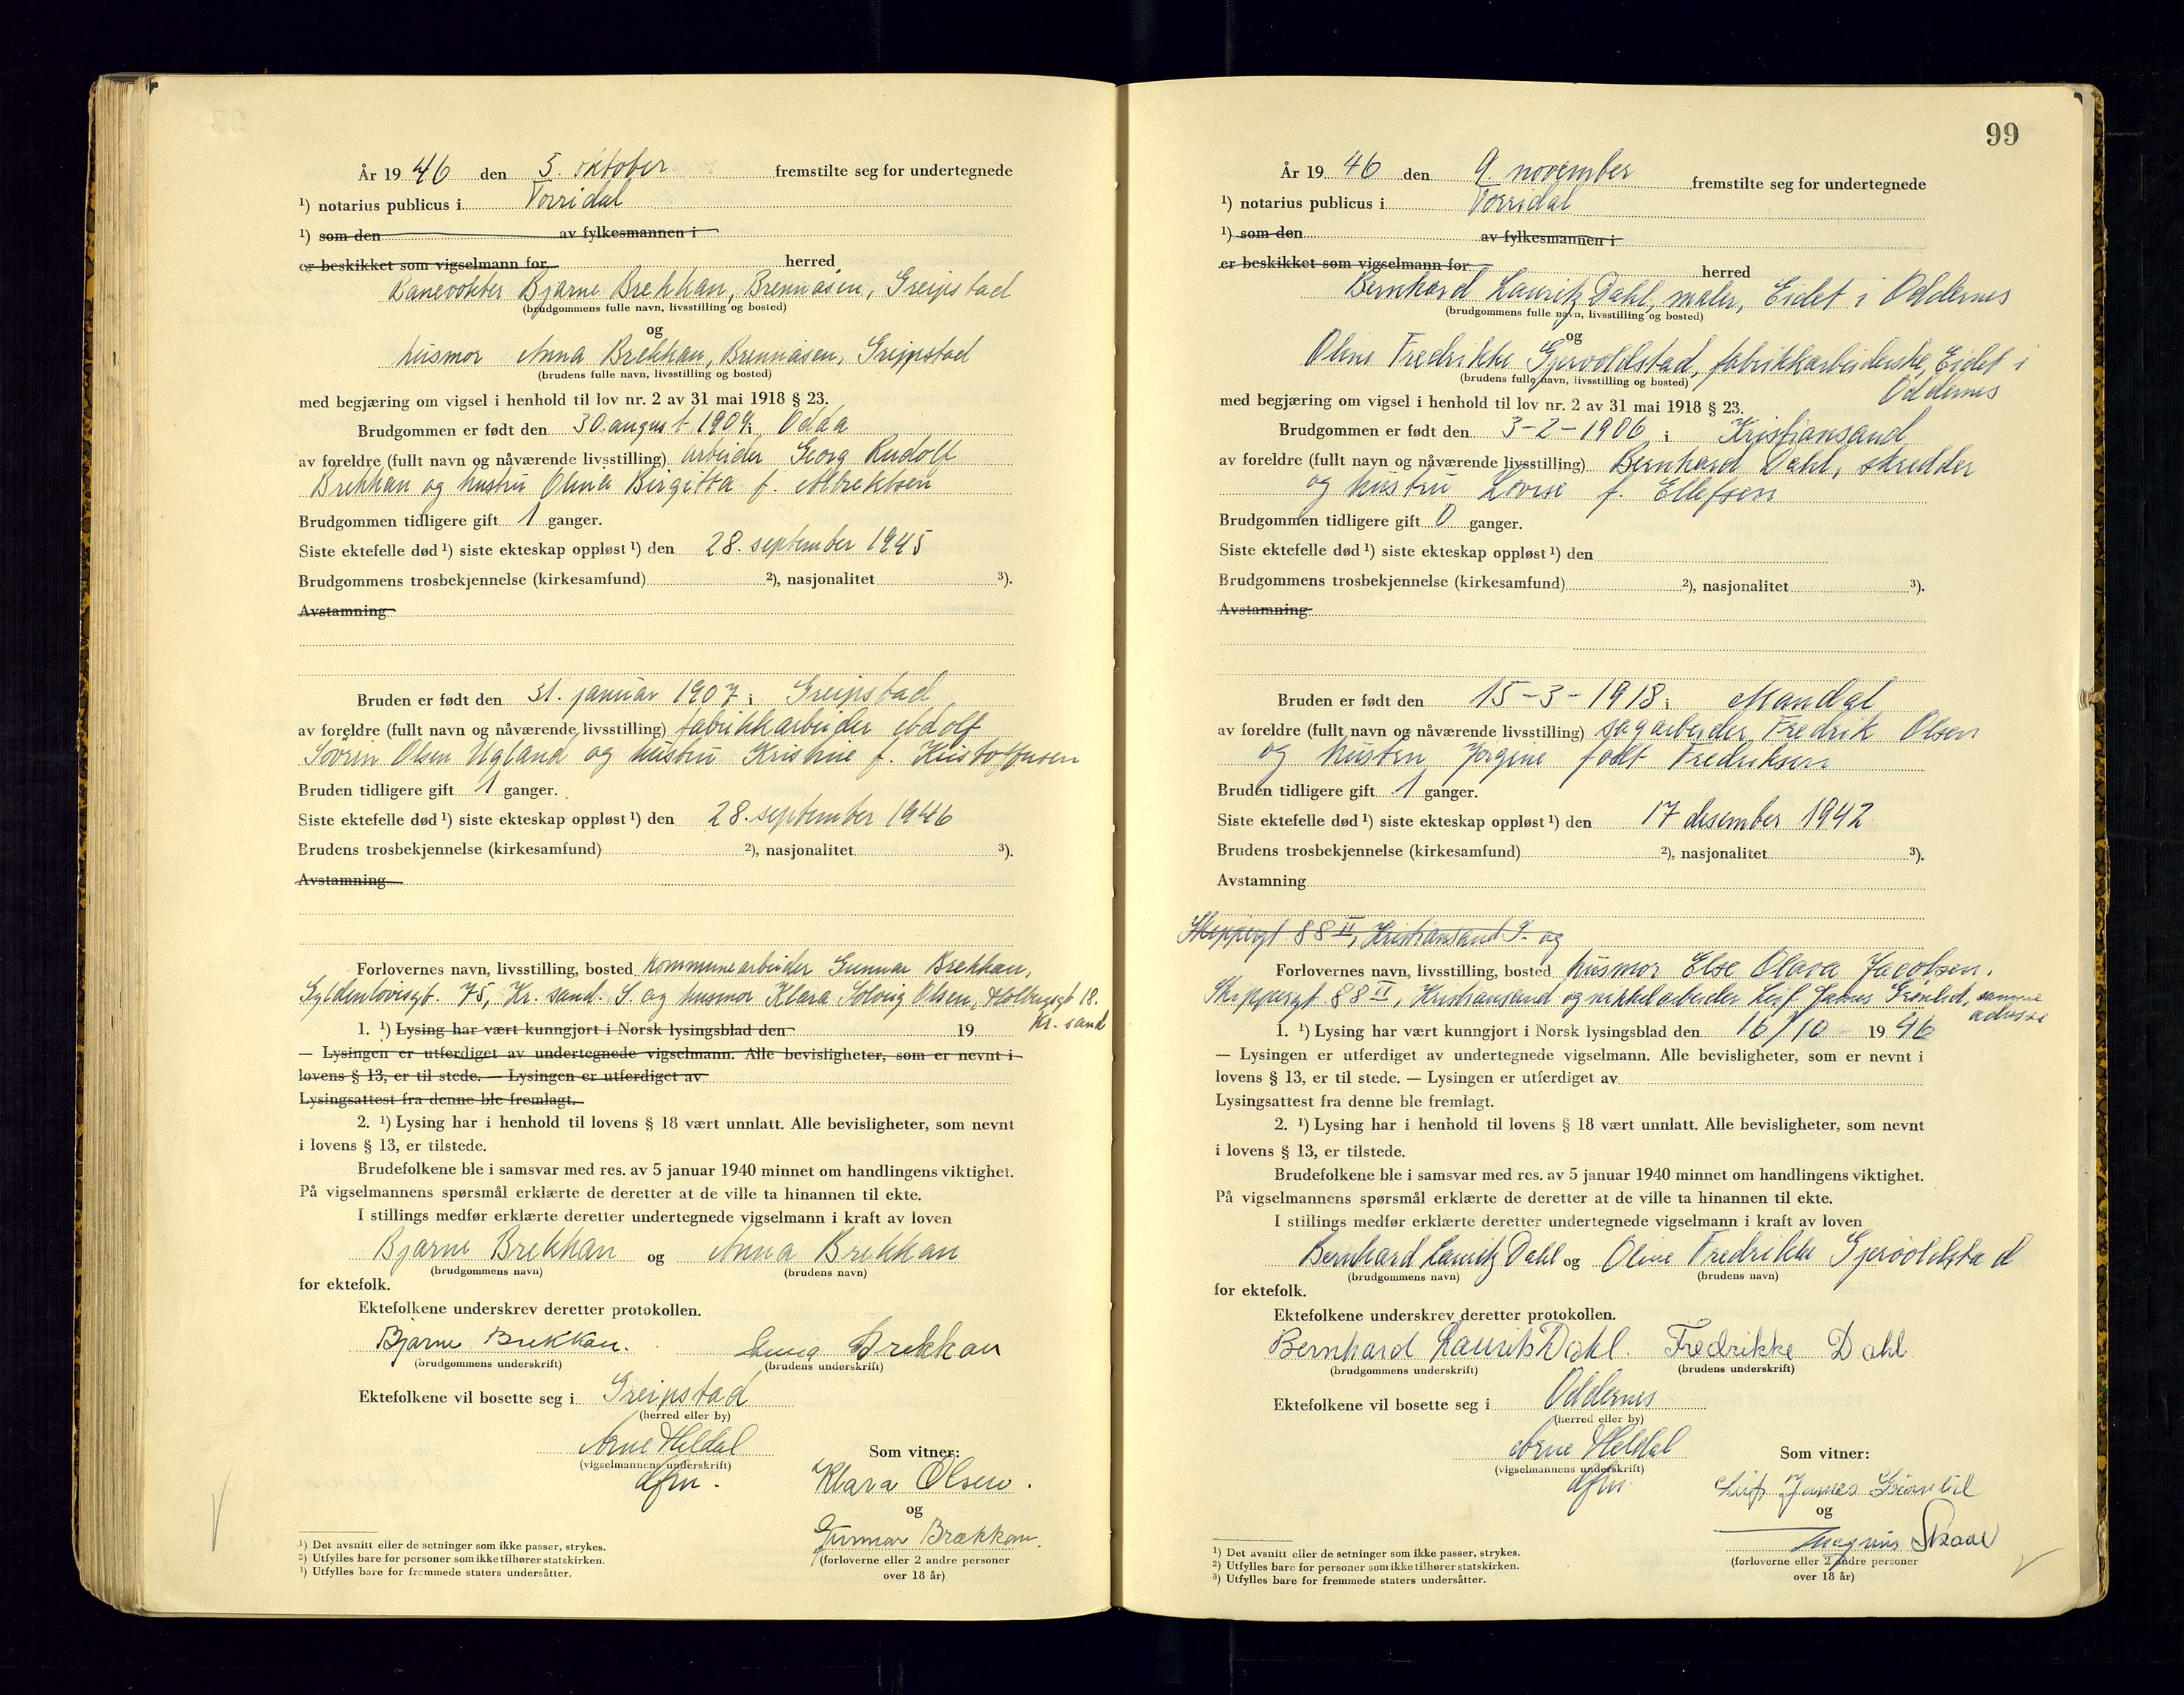 År 1946 den 5. oktober fremstilte seg for undertegnede
¹) notarius publicus i Torridal
¹) som den av fylkesmannen i
er beskikket som vigselmann for herred
Banevokter Bjarne Brekkan, Brennåsen, Greipstad
(brudgommens fulle navn, livsstilling og bosted)
og
husmor Anna Brekkan, Brennåsen, Greipstad
(brudens fulle navn, livsstilling og bosted)
med begjæring om vigsel i henhold til lov nr. 2 av 31 mai 1918 § 23.
Brudgommen er født den 30. august 1909 i Odda
av foreldre (fullt navn og nåværende livsstilling) arbeider Georg Rudolf
Brekkan og hustru Olina Birgitta f. Albrektsen
Brudgommen tidligere gift 1 ganger.
Siste ektefelle død ¹) siste ekteskap oppløst ¹) den 28. september 1945
Brudgommens trosbekjennelse (kirkesamfund) ²), nasjonalitet ³).
Avstamning
Bruden er født den 31. januar 1907 i Greipstad
av foreldre (fullt navn og nåværende livsstilling) fabrikkarbeider Adolf
Søren Olsen Ugland og hustru Kristine f. Kristoffersen
Bruden tidligere gift 1 ganger.
Siste ektefelle død ¹) siste ekteskap oppløst ¹) den 28. september 1946
Brudens trosbekjennelse (kirkesamfund) ²), nasjonalitet ³).
Avstamning
Forlovernes navn, livsstilling, bosted kommunearbeider Gunnar Brekkan,
Gyldenløvesgt. 75, Kr. sand. S. og husmor Klara Solveig Olsen, Holbergsgt 18.
Kr. sand
1. ¹) Lysing har vært kunngjort i Norsk lysingsblad den 19
— Lysingen er utferdiget av undertegnede vigselmann. Alle bevisligheter, som er nevnt i
lovens § 13, er til stede. — Lysingen er utferdiget av
Lysingsattest fra denne ble fremlagt.
2. ¹) Lysing har i henhold til lovens § 18 vært unnlatt. Alle bevisligheter, som nevnt
i lovens § 13, er tilstede.
Brudefolkene ble i samsvar med res. av 5 januar 1940 minnet om handlingens viktighet.
På vigselmannens spørsmål erklærte de deretter at de ville ta hinannen til ekte.
I stillings medfør erklærte deretter undertegnede vigselmann i kraft av loven
Bjarne Brekkan og Anna Brekkan
(brudgommens navn) (brudens navn)
for ektefolk.
Ektefolkene underskrev deretter protokollen.
Bjarne Brekkan. Anna Brekkan
(brudgommens underskrift) (brudens underskrift)
Ektefolkene vil bosette seg i Greipstad
(herred eller by)
Arne Heldal Som vitner:
(vigselmannens underskrift)
dfm. Klara Olsen.
og
Gunnar Brækkan.
(forloverne eller 2 andre personer
over 18 år)
¹) Det avsnitt eller de setninger som ikke passer, strykes.
²) Utfylles bare for personer som ikke tilhører statskirken.
³) Utfylles bare for fremmede staters undersåtter.
99
År 1946 den 9. november fremstilte seg for undertegnede
¹) notarius publicus i Torridal
¹) som den av fylkesmannen i
er beskikket som vigselmann for herred
Bernhard Lauritz Dahl, maler, Eidet i Oddernes
(brudgommens fulle navn, livsstilling og bosted)
og
Oline Fredrikke Gjervoldstad, fabrikkarbeiderske, Eidet i
(brudens fulle navn, livsstilling og bosted)
Oddernes
med begjæring om vigsel i henhold til lov nr. 2 av 31 mai 1918 § 23.
Brudgommen er født den 3-2-1906 i Kristiansand
av foreldre (fullt navn og nåværende livsstilling) Bernhard Dahl, skredder
og hustru Lovise f. Ellefsen
Brudgommen tidligere gift 0 ganger.
Siste ektefelle død ¹) siste ekteskap oppløst ¹) den
Brudgommens trosbekjennelse (kirkesamfund) ²), nasjonalitet ³).
Avstamning
Bruden er født den 15-3-1918 i Mandal
av foreldre (fullt navn og nåværende livsstilling) sagarbeider Fredrik Olsen
og hustru Jørgine født Fredriksen
Bruden tidligere gift 1 ganger.
Siste ektefelle død ¹) siste ekteskap oppløst ¹) den 17 desember 1942
Brudens trosbekjennelse (kirkesamfund) ²), nasjonalitet ³).
Avstamning
Skippergt 88 II, Kristiansand S. og
Forlovernes navn, livsstilling, bosted husmor Else Olava Jacobsen.
Skippergt 88 II, Kristiansand og nikkelarbeider Leif James Grønlid, samme
adresse
1. ¹) Lysing har vært kunngjort i Norsk lysingsblad den 16/10 - 1946
— Lysingen er utferdiget av undertegnede vigselmann. Alle bevisligheter, som er nevnt i
lovens § 13, er til stede. — Lysingen er utferdiget av
Lysingsattest fra denne ble fremlagt.
2. ¹) Lysing har i henhold til lovens § 18 vært unnlatt. Alle bevisligheter, som nevnt
i lovens § 13, er tilstede.
Brudefolkene ble i samsvar med res. av 5 januar 1940 minnet om handlingens viktighet.
På vigselmannens spørsmål erklærte de deretter at de ville ta hinannen til ekte.
I stillings medfør erklærte deretter undertegnede vigselmann i kraft av loven
Bernhard Lauritz Dahl og Oline Fredrikke Gjervoldstad
(brudgommens navn) (brudens navn)
for ektefolk.
Ektefolkene underskrev deretter protokollen.
Bernhard Laurits Dahl. Fredrikke Dahl
(brudgommens underskrift) (brudens underskrift)
Ektefolkene vil bosette seg i Oddernes
(herred eller by)
Arne Heldal Som vitner:
(vigselmannens underskrift)
dfm. Leif James Grønlid
og
Magnus Skaar
(forloverne eller 2 andre personer
over 18 år)
¹) Det avsnitt eller de setninger som ikke passer, strykes.
²) Utfylles bare for personer som ikke tilhører statskirken.
³) Utfylles bare for fremmede staters undersåtter.